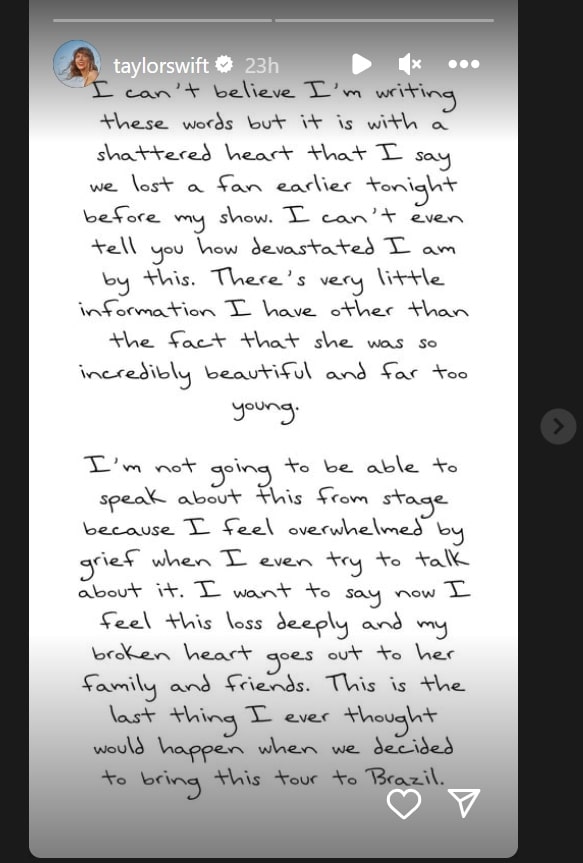 taylorswift 23h
I can't believe I'm writing
these words but it is with a
shattered heart that I say
we lost a fan earlier tonight
before my show. I can't even
tell you how devastated I am
by this. There's very little
information I have other than
the fact that she was so
incredibly beautiful and far too
young.
I'm not going to be able to
speak about this from stage
because I feel overwhelmed by
grief when I even try to talk
about it. I want to say now I
feel this loss deeply and my
broken heart goes out to her
family and friends. This is the
last thing I ever thought
would happen when we decided
to bring this tour to Brazil.